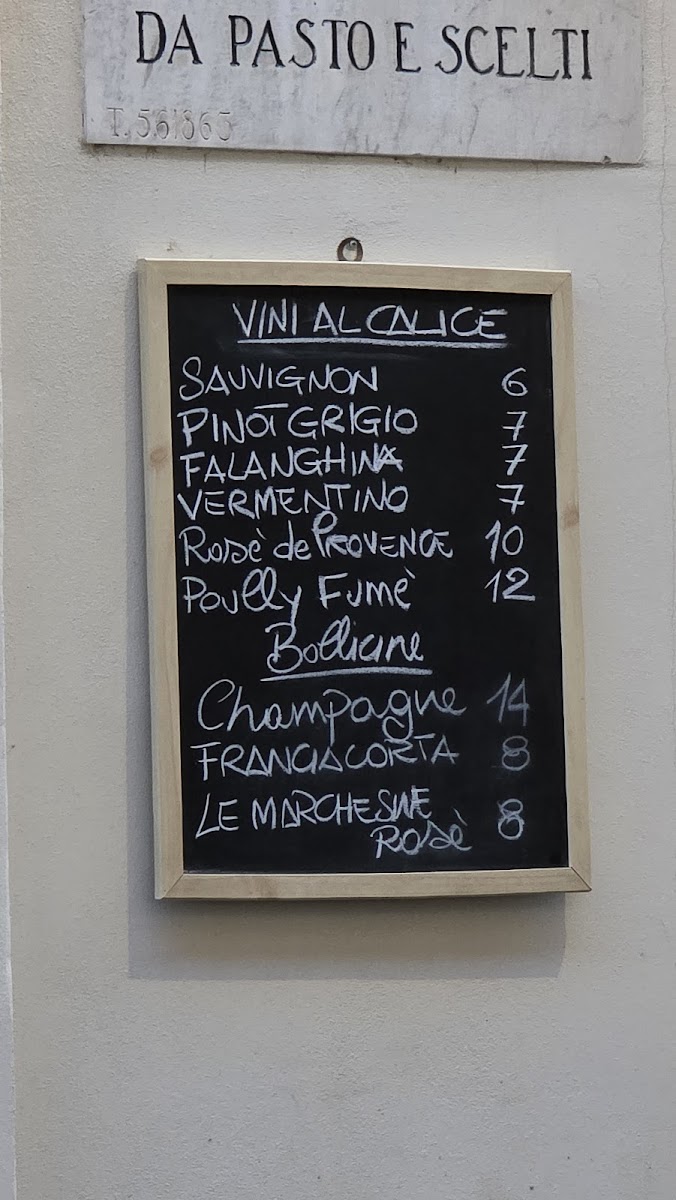 DA PASTO E SCELTI
T. 561865
VINI AL CALICE
SAUVIGNON 6
PINOT GRIGIO 7
FALANGHINA 7
VERMENTINO 7
Rosè de PROVENCE 10
Poully Fumè 12
Bollicine
Champagne 14
FRANCIACORTA 8
LE MARCHESINE
ROSÈ 8